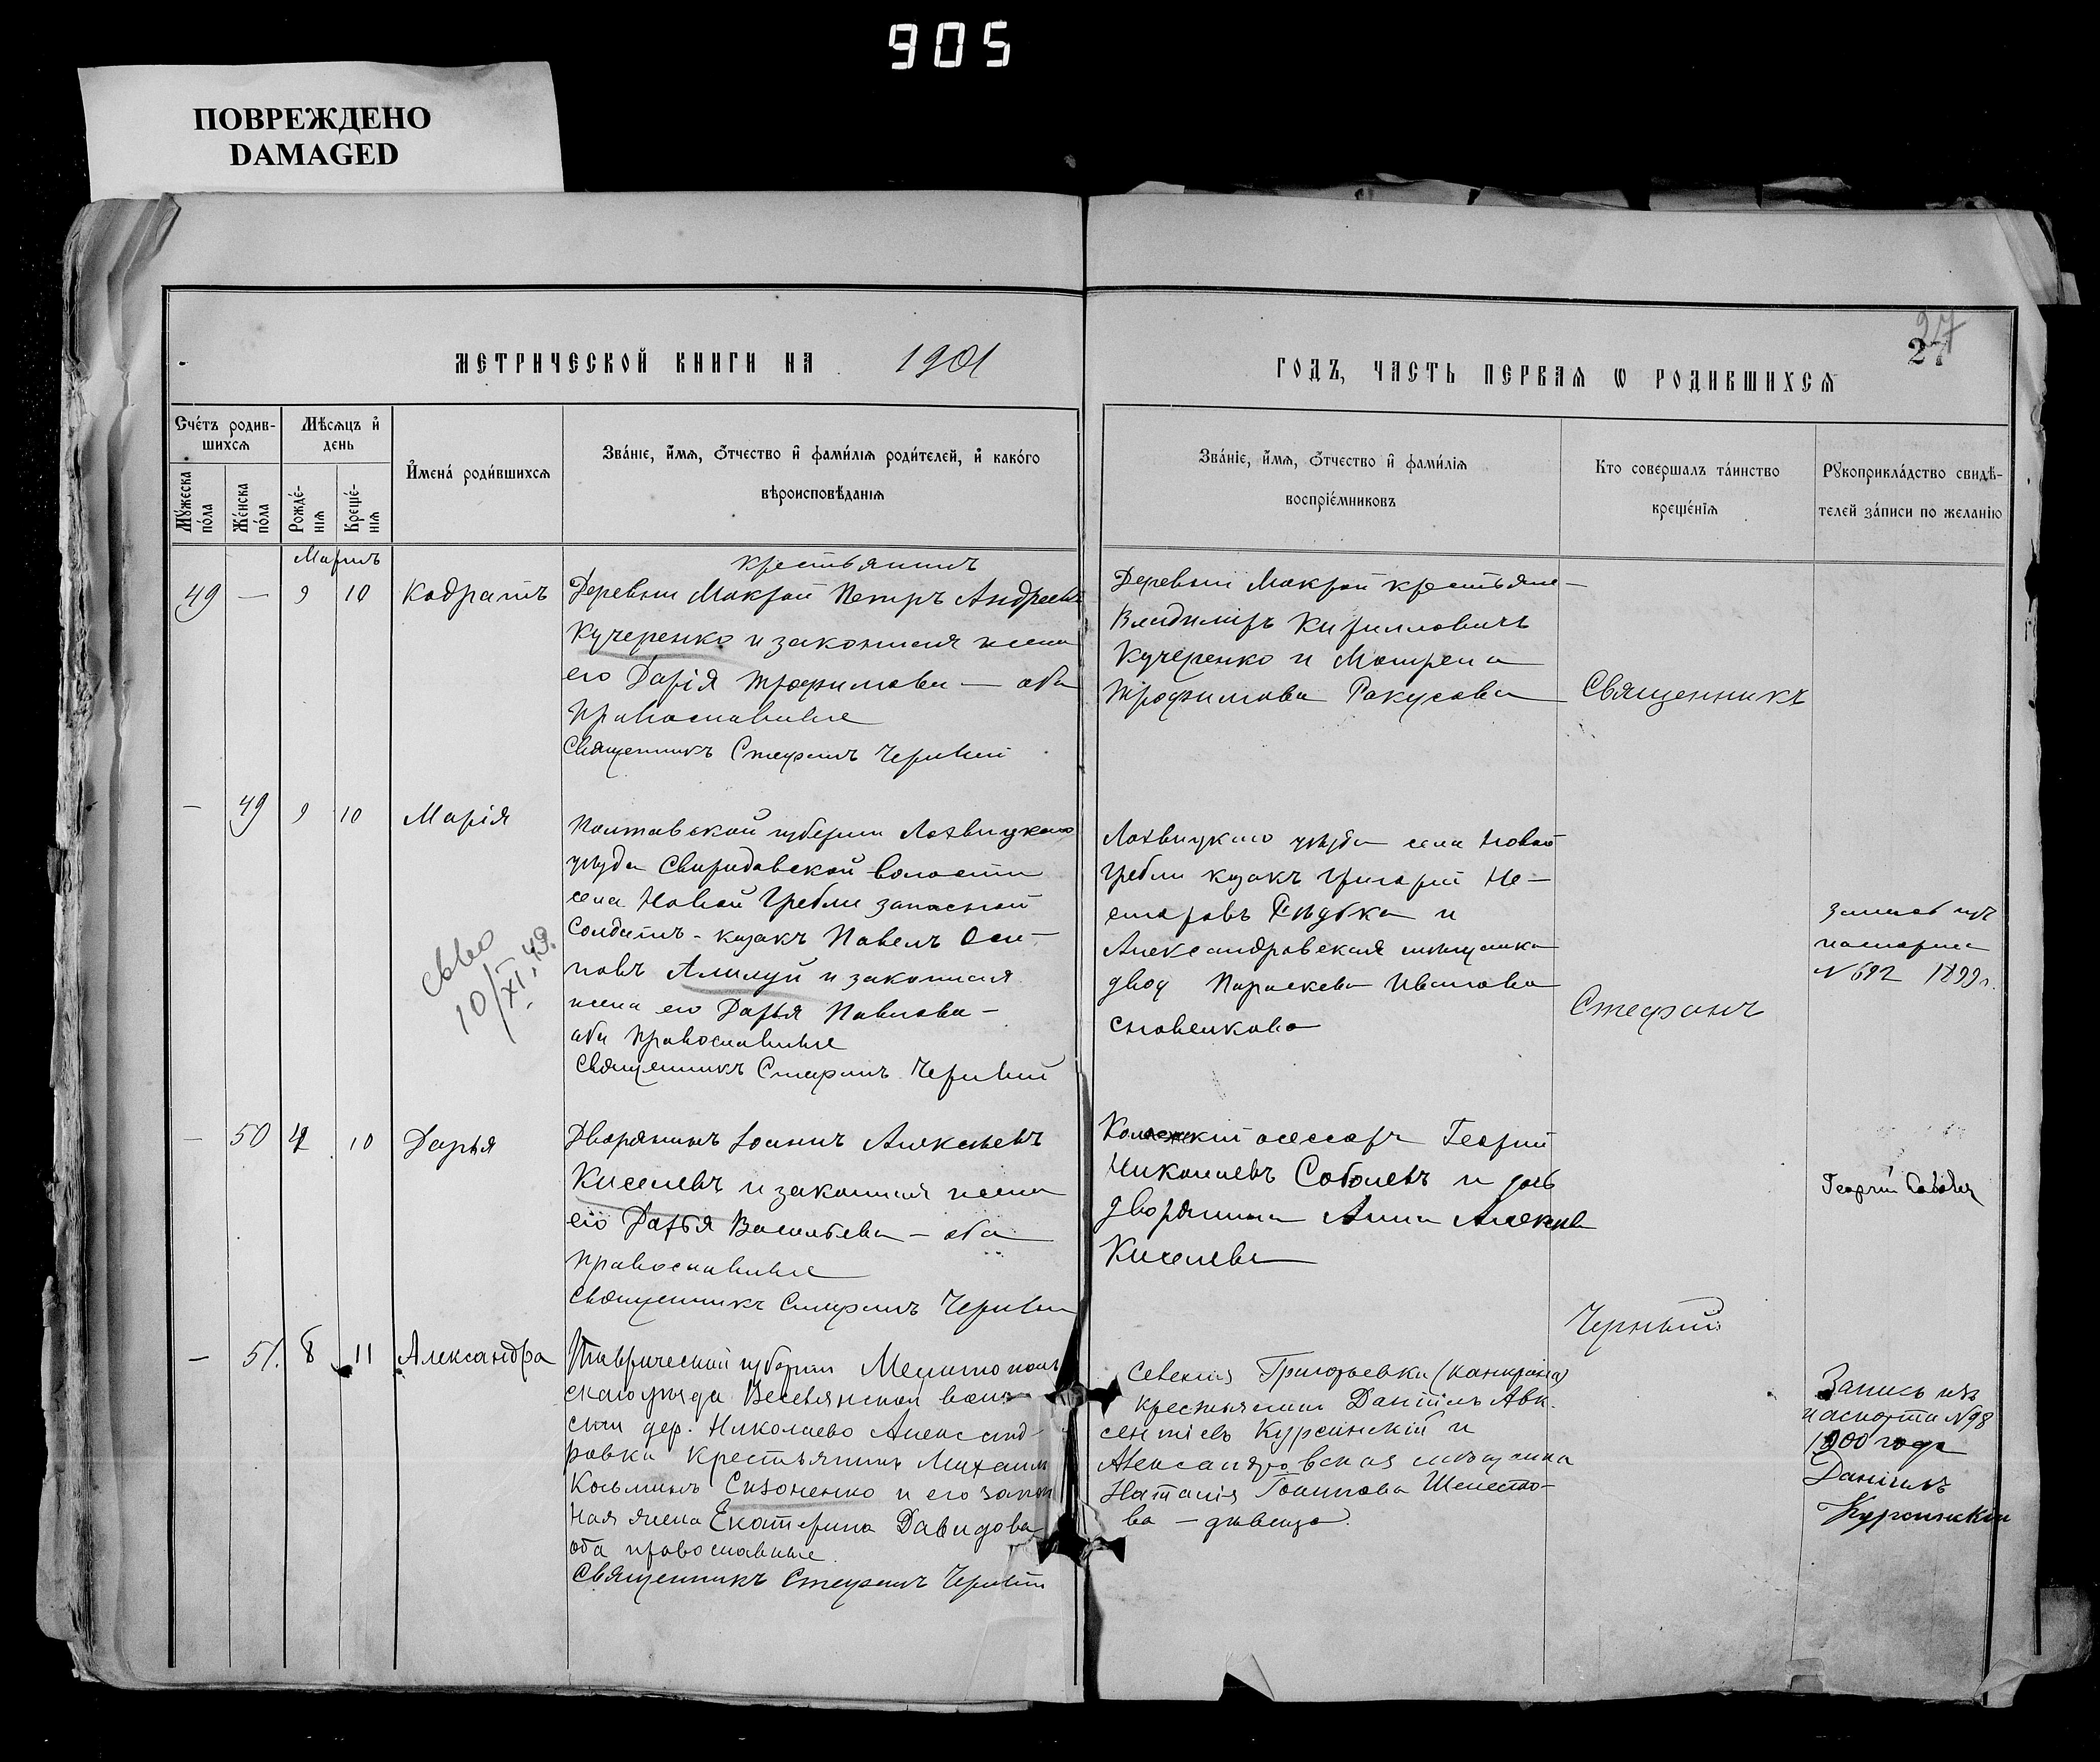 905
ПОВРЕЖДЕНО
DAMAGED
27
27
МЕТРИЧЕСКОЙ КНИГИ НА 1901
ГОДЪ, ЧАСТЬ ПЕРВАЯ Ѡ РОДИВШИХСЯ
Счетъ родив-
шихся
Мужеска
пола
Женска
пола
Мѣсяцъ и
день
Рожде-
нія
Креще-
нія
Имена родившихся
Званіе, имя, отчество и фамилія родителей, и какого
вѣроисповѣданія
Званіе, имя, отчество и фамилія
воспріемниковъ
Кто совершалъ таинство
крещенія
Рукоприкладство свидѣ-
телей записи по желанію
Мартъ
49 — 9 10 Кодратъ
крестьянинъ
Деревни Мокрой Петръ Андреевъ
Кучеренко и законная жена
его Дарія Трофимова — оба
православные
Священникъ Стефанъ Черный
Деревни Мокрой крестьяне —
Владиміръ Кирилловичъ
Кучеренко и Матрена
Трофимова Ракусова
Священникъ
— 49 9 10 Марія
10/XI 49.
Полтавской губерніи Лохвицкаго
уѣзда Свиридовской волости
села Новой Гребли запасной
солдатъ - казакъ Павелъ Оси-
повъ Алилуй и законная
жена его Дарья Павлова —
оба православные
Священникъ Стефанъ Черный
Лохвицкаго уѣзда села Новой
Гребли казакъ Григорій Не-
сторовъ и
Александровская мѣщанка
Параскева Иванова
Стефанъ
№ 692 1899 г.
— 50 4 10 Дарья
Дворянинъ Іоаннъ Алексѣевъ
Киселевъ и законная жена
его Дарья Васильева — оба
православные
Священникъ Стефанъ Черный
асессоръ Георгій
Николаевъ Соболевъ и дочь
дворянина Анна
Киселева
Георгій Соболевъ
Черный
— 51. 8 11 Александра
Таврической губерніи Мелитополь
скаго уѣзда Веселянской воло-
сти дер. Николаево Александ-
ровки крестьянинъ Михаилъ
Козьминъ Сизоненко и его закон
ная жена Екатерина Давидова
оба православные.
Священникъ Стефанъ Черный
Селенія Григорьевки (Канкрина)
крестьянинъ Даніилъ Авк-
сентіевъ Курсинскій и
Александровская мѣщанка
Наталія Шелесто-
ва — дѣвица.
Запись изъ
паспорта № 98
1900 года
Даніилъ
Курсинскій